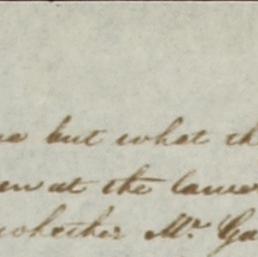 but what th
at the lawe
whether Mr. Ga